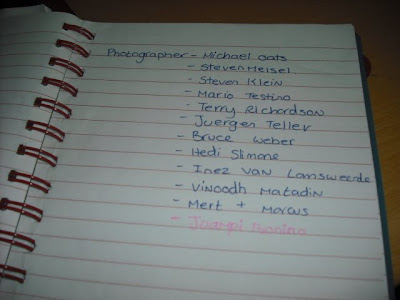 Photographer - Michael Oats
- Steven Meisel
- Steven Klein
- Mario Testino
- Terry Richardson
- Juergen Teller
- Bruce Weber
- Hedi Slimane
- Inez Van Lamsweerde
- Vinoodh Matadin
- Mert + Marcus
- Juampi